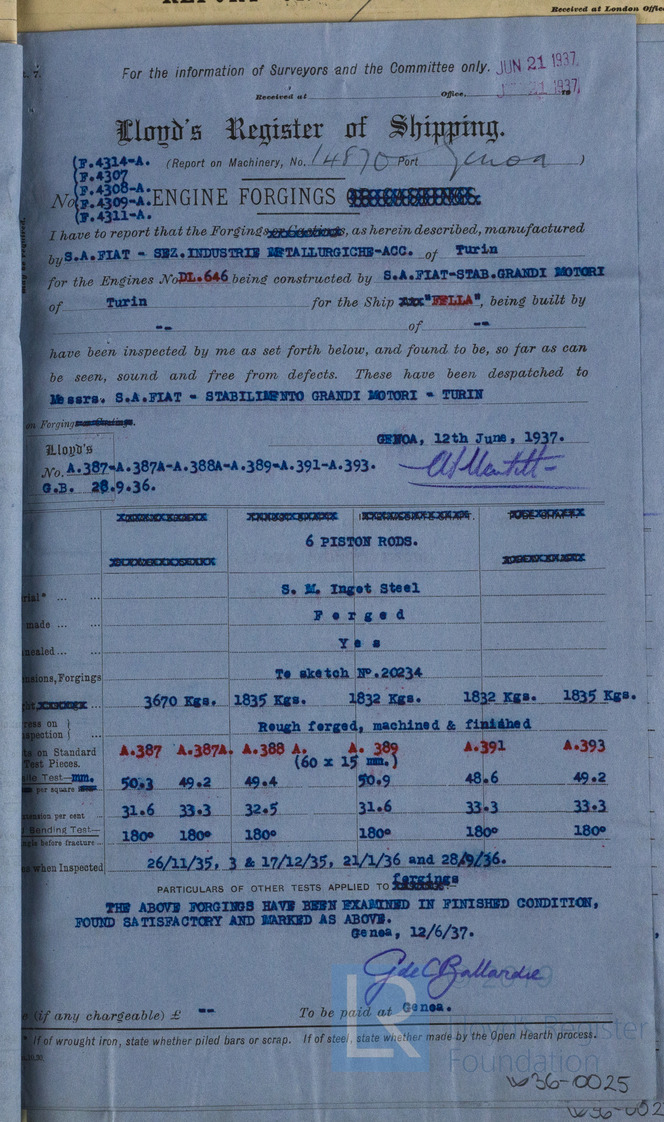 Received at London Office
For the information of Surveyors and the Committee only. JUN 21 1937
Received at Office, 21 1937
Lloyd's Register of Shipping.
(F.4314-A. (Report on Machinery, No. 14870 Port Genoa )
(F.4307
(F.4308-A.
No (F.4309-A. ENGINE FORGINGS
(F.4311-A.
I have to report that the Forgings or Castings, as herein described, manufactured
by S.A.FIAT - SEZ.INDUSTRIE METALLURGICHE-ACC. of Turin
for the Engines No DL.646 being constructed by S.A.FIAT-STAB.GRANDI MOTORI
of Turin for the Ship "FELLA", being built by
-- of --
have been inspected by me as set forth below, and found to be, so far as can
be seen, sound and free from defects. These have been despatched to
Messrs. S.A.FIAT - STABILIMENTO GRANDI MOTORI - TURIN
on Forgings
GENOA, 12th June, 1937.
Lloyd's
No. A.387-A.387A-A.388A-A.389-A.391-A.393.
G.B. 28.9.36.
6 PISTON RODS.
rial* ... ... S. M. Ingot Steel
made ... ... Forged
nealed ... ... Yes
nsions, Forgings To sketch Nº.20234
3670 Kgs. 1835 Kgs. 1832 Kgs. 1832 Kgs. 1835 Kgs.
ress on
spection Rough forged, machined & finished
ts on Standard A.387 A.387A. A.388 A. A. 389 A.391 A.393
Test Pieces. (60 x 15 mm.)
ile Test—mm. 50.3 49.2 49.4 50.9 48.6 49.2
per square
xtension per cent 31.6 33.3 32.5 31.6 33.3 33.3
Bending Test— 180° 180° 180° 180° 180° 180°
gle before fracture
n when Inspected 26/11/35, 3 & 17/12/35, 21/1/36 and 28/9/36.
PARTICULARS OF OTHER TESTS APPLIED TO forgings
THE ABOVE FORGINGS HAVE BEEN EXAMINED IN FINISHED CONDITION,
FOUND SATISFACTORY AND MARKED AS ABOVE.
Genoa, 12/6/37.
G de C Ballardie
e (if any chargeable) £ -- To be paid at Genoa.
* If of wrought iron, state whether piled bars or scrap. If of steel, state whether made by the Open Hearth process.
LR
Lloyd's Register
Foundation
W36-0025